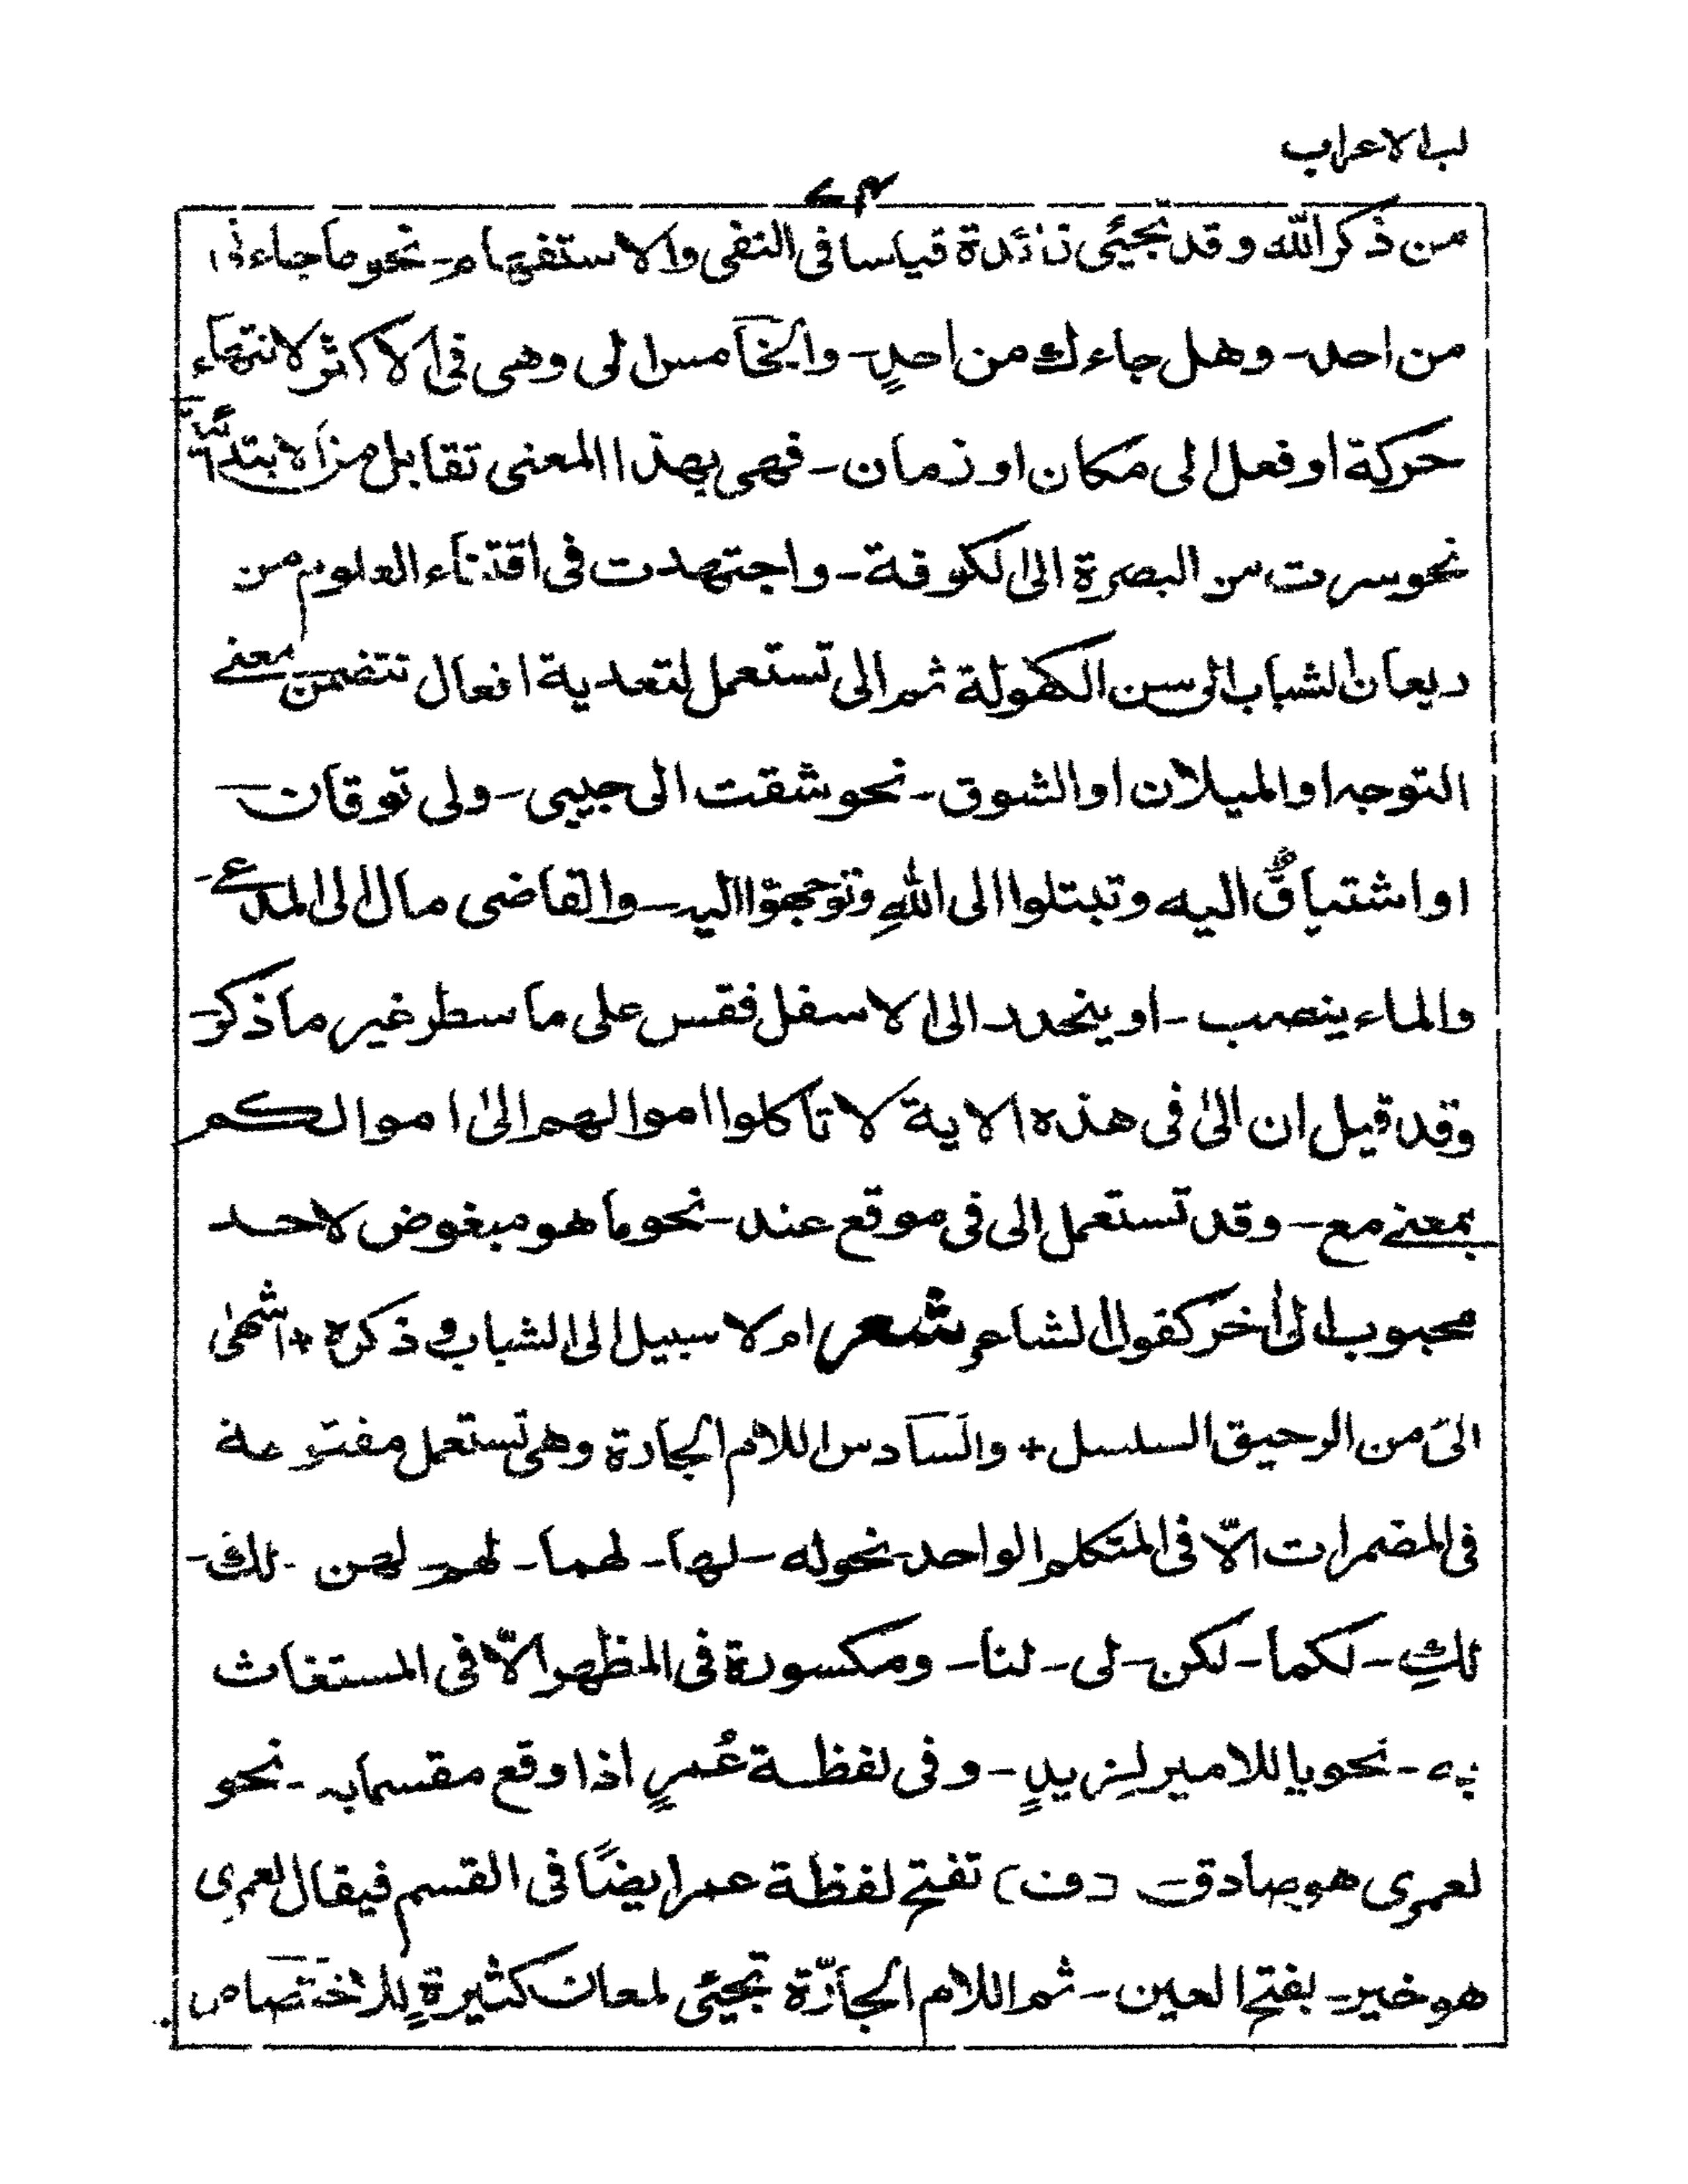 لب الاعراب
من ذكر الله وقد تجيئ زائدة قياسا في النفى والاستفهام - نحو ما جاءنى
من احد - وهل جاءك من احدٍ - والخامس الى وهى فى الاكثر لانتهاء
حركة او فعل الى مكان او زمان - فهى بهذا المعنى تقابل من الابتدائية
نحو سرت من البصرة الى الكوفة - واجتهدت فى اقتناء العلوم من
ريعان الشباب الى سن الكهولة ثم الى تستعمل لتعدية افعال تتضمن معنے
التوجه او الميلان او الشوق - نحو شقت الى حبيبى - ولى توقان
او اشتياقٌ اليه وتبتلوا الى اللهِ وتوجهوا اليه - والقاضى مال الى المدعے -
والماء ينصب - او ينحدر الى الاسفل فقس على ما سطر غير ما ذكر -
وقد قيل ان الىٰ فى هذه الاية لا تاكلوا اموالهم الىٰ اموالكم
بمعنے مع - وقد تستعمل الى فى موقع عند - نحو ما هو مبغوض لاحد
محبوب الىٰ اخر كقول الشاعر شعر ام لا سبيل الى الشباب و ذكره + اشهىٰ
الىّ من الرحيق السلسل + والسادس اللام الجارة وهى تستعمل مفتوحة
فى المضمرات الّا فى المتكلم الواحد نحو له - لها - لهما - لهم - لهن - لك -
لكِ - لكما - لكن - لى - لنا - ومكسورة فى المظهر الّا فى المستغاث
به - نحو يا للامير لِزيدٍ - و فى لفظة عُمرٍ اذا وقع مقسما به - نحو
لعمرى هو صادق (ف) تفتح لفظة عمر ايضًا فى القسم فيقال لعمرِى
هو خير - بفتح العين - ثم اللام الجارّة تجيئ لمعان كثيرةٍ للاختصاص